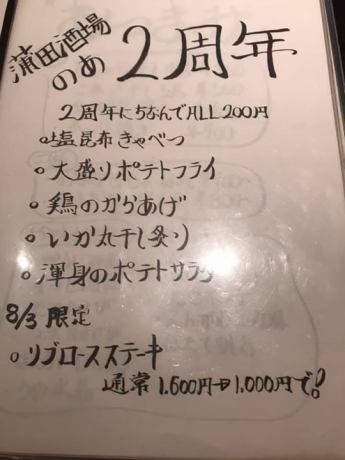 蒲田酒場
のあ 2周年
2周年にちなんでALL200円
○塩昆布きゃべつ
○大盛りポテトフライ
○鶏のからあげ
○いか丸干し炙り
○渾身のポテトサラダ
8/3 限定
○リブロースステーキ
通常1,600円→1,000円で!